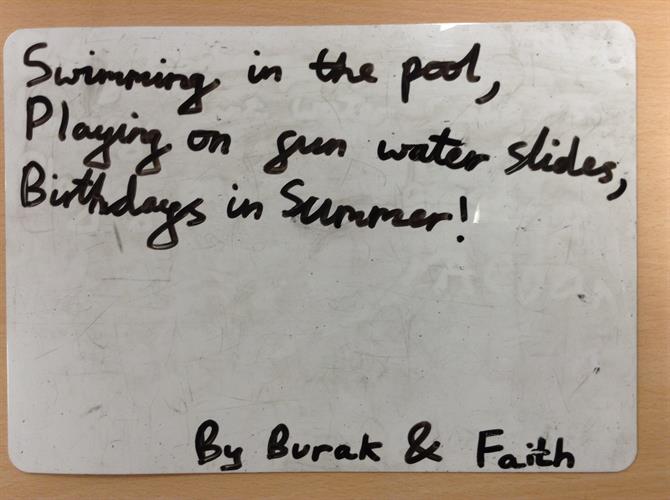 Swimming in the pool,
Playing on fun water slides,
Birthdays in Summer!
By Burak & Faith